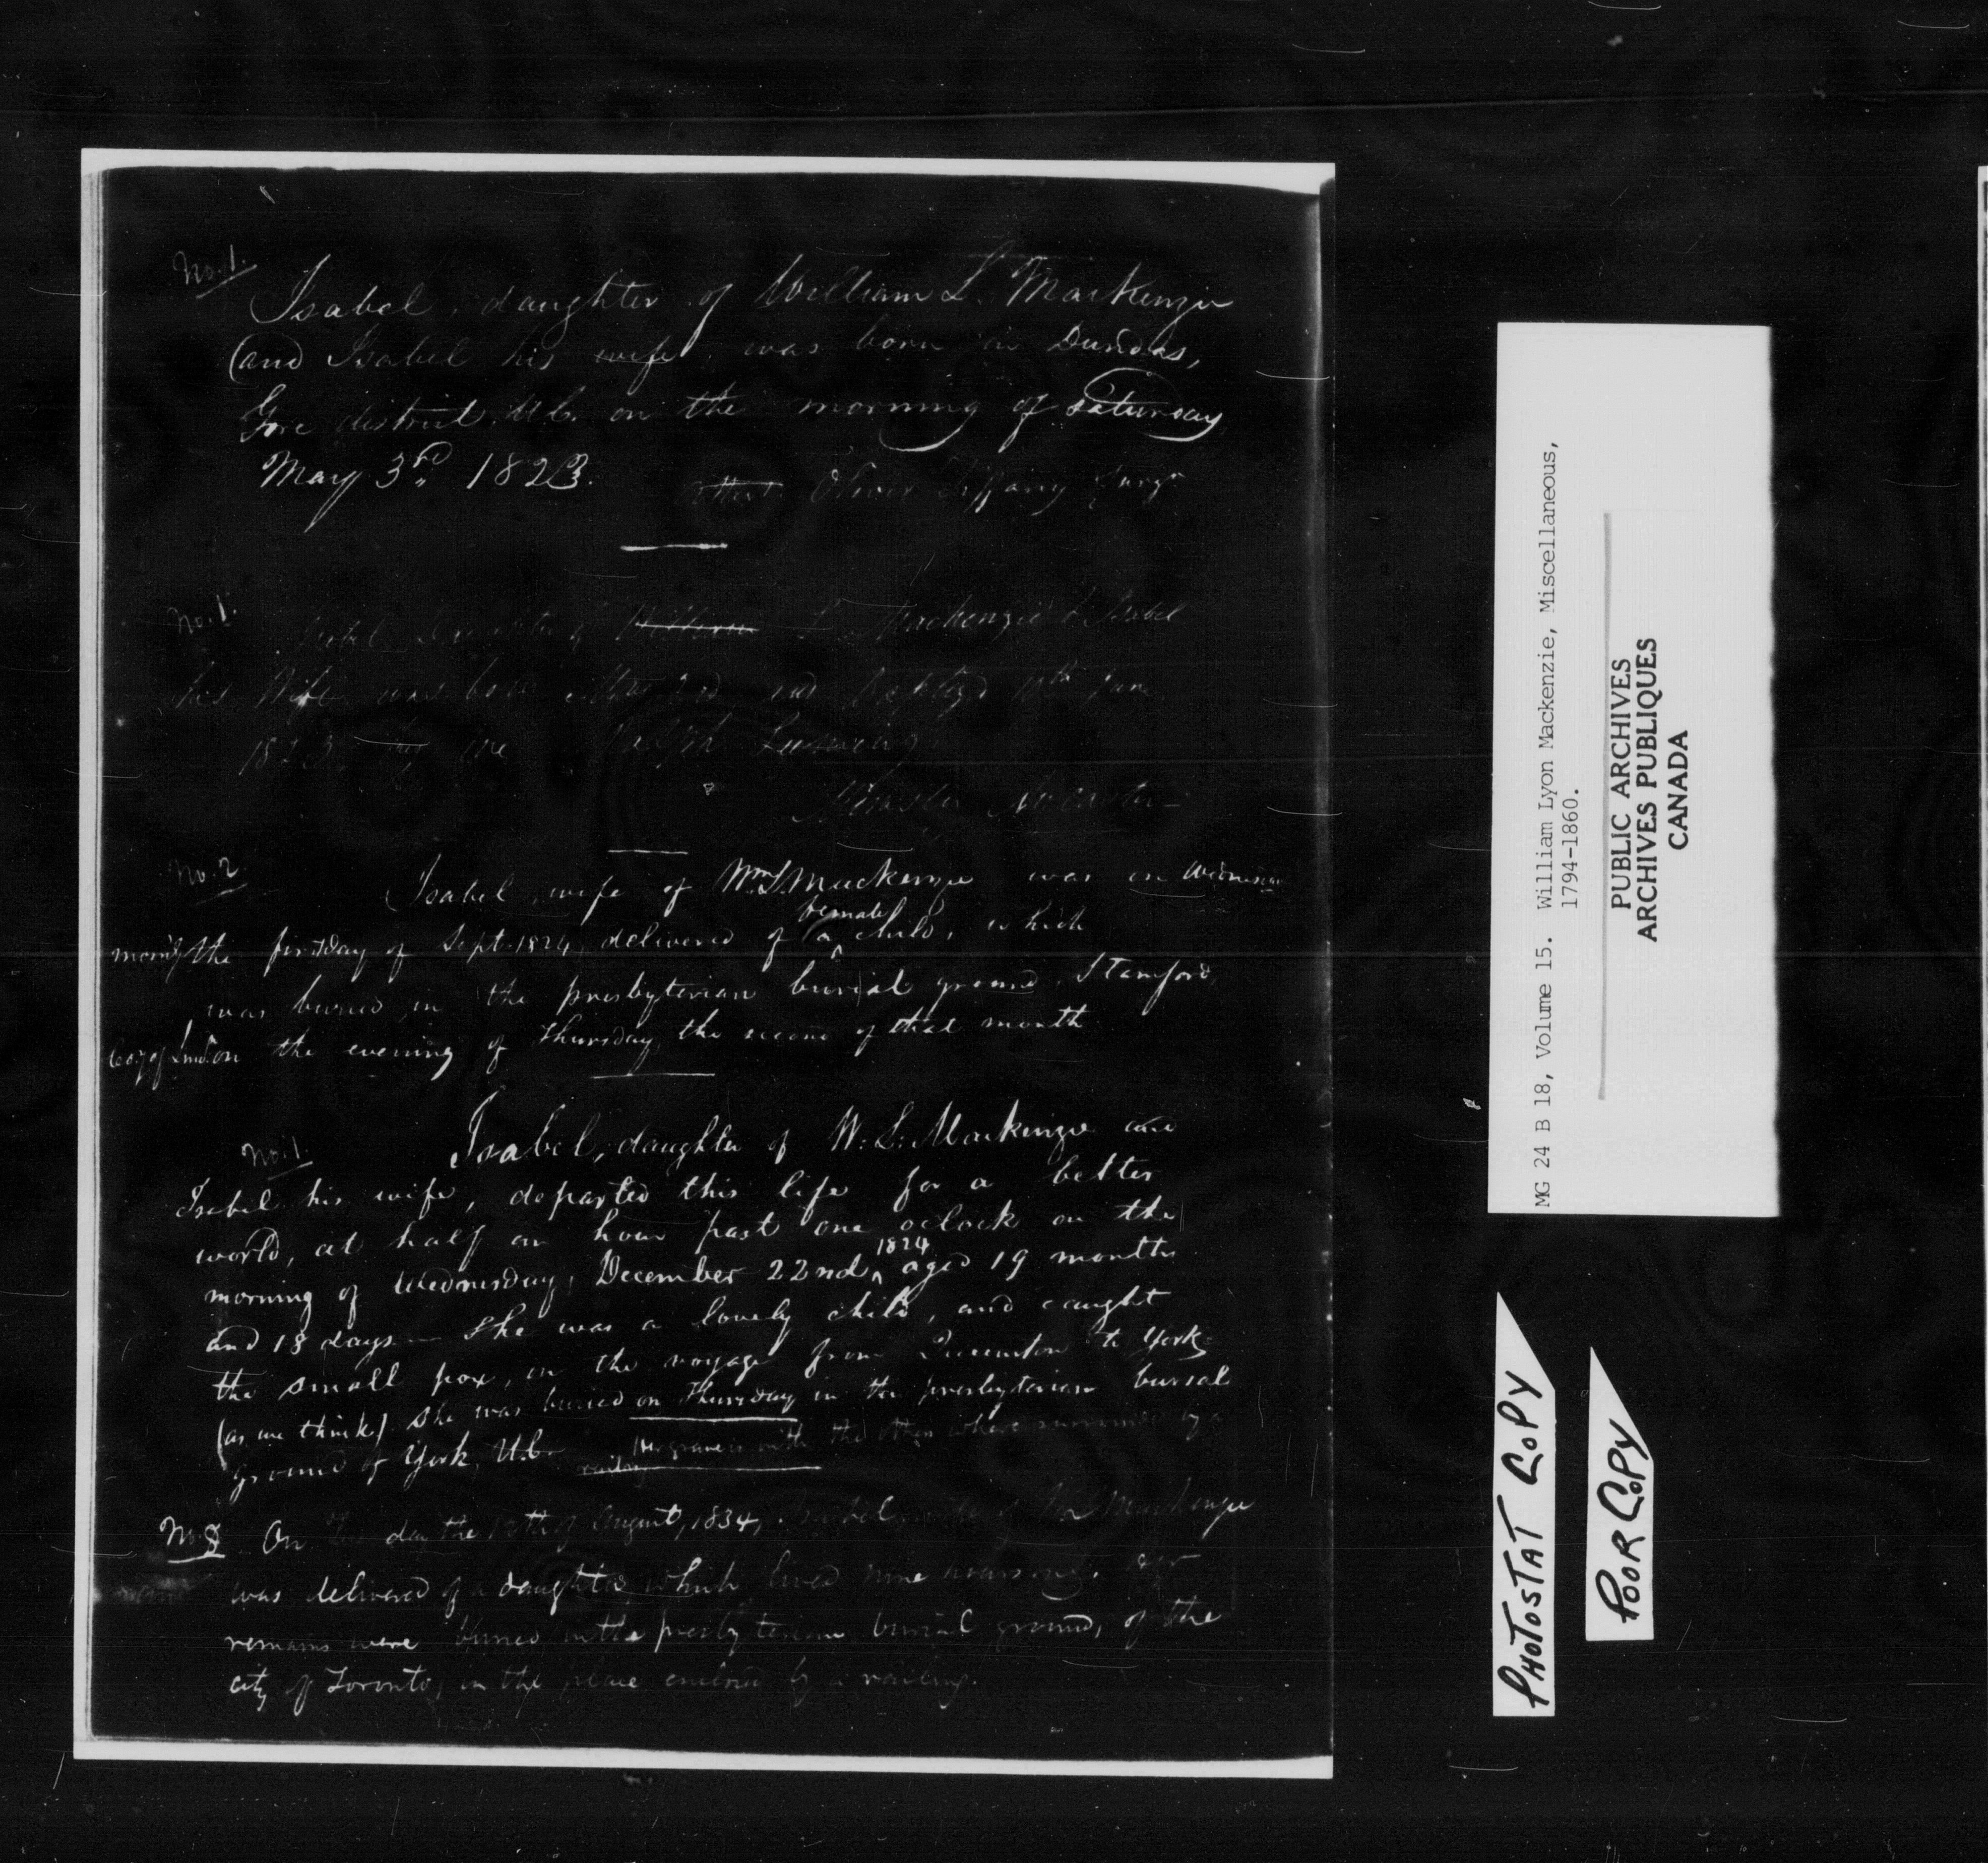 No. 1.
Isabel, daughter of William L. Mackenzie
(and Isabel his wife, was born in Dundas,
Gore district U.C. on the morning of Saturday
May 3rd 1823.
attest Oliver Tiffany Surgn
No. 1.
Isabel Daughter of William L. Mackenzie & Isabel
his Wife was born and Baptized June
1823 by me Ralph Leeming
Minister Ancaster
No. 2
Isabel, wife of Wm L Mackenzie was on Wednesday
morng the first day of Sept. 1824, delivered of a female child, which
was buried in the presbyterian burial ground, Stamford,
on the evening of Thursday, the second of that month
No. 1.
Isabel, daughter of W. L. Mackenzie and
Isabel his wife, departed this life for a better
world, at half an hour past one oclock on the
morning of Wednesday, December 22nd, 1824 aged 19 months
and 18 days — She was a lovely child, and caught
the small pox, on the voyage from Queenston to York
(as we think) she was buried on Thursday in the presbyterian burial
ground of York, U.C. Her grave is with the others where surrounded by a
railing
No. 8 On the day the of August, 1834, Isabel wife of Mackenzie
was delivered of a daughter which lived nine hours only. Her
remains were buried in the presbyterian burial ground, of the
city of Toronto, in the place enclosed by a railing.
MG 24 B 18, Volume 15. William Lyon Mackenzie, Miscellaneous,
1794-1860.
PUBLIC ARCHIVES
ARCHIVES PUBLIQUES
CANADA
PHOTOSTAT COPY
POOR COPY